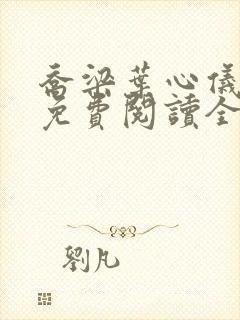 喬梁葉心儀
免費閱讀全
劉凡